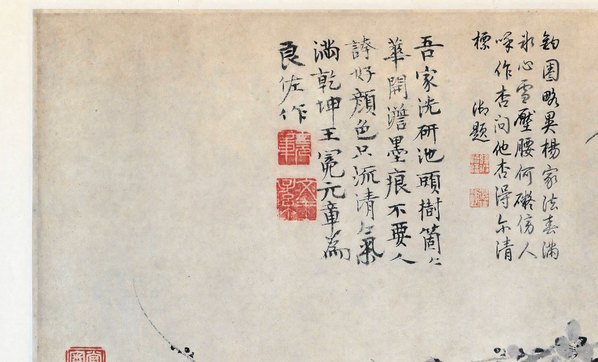 鈎圈略異楊家法春滿
氷心雪壓腰何礙傍人
喚作杏問他杏得尔清
標 御題
吾家洗研池頭樹箇〻
華開澹墨痕不要人
誇好顔色只流清氣
滿乾坤王冕元章為
良佐作